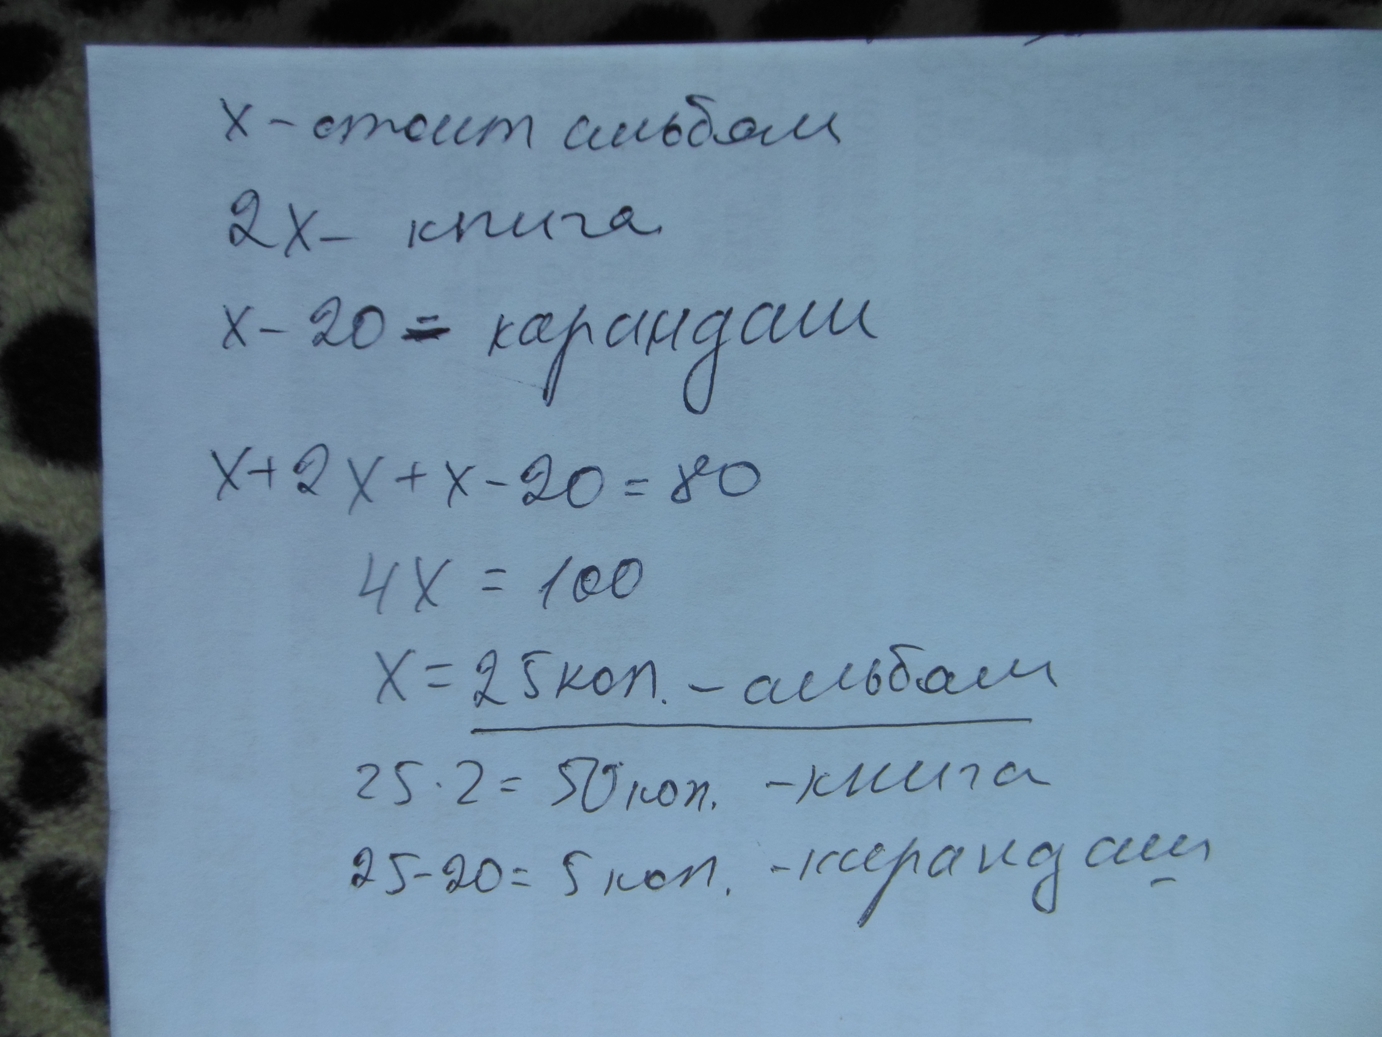 x - стоит альбом
2x - книга
x - 20 = карандаш
x + 2x + x - 20 = 80
4x = 100
x = 25 коп. - альбом
25 · 2 = 50 коп. - книга
25 - 20 = 5 коп. - карандаш